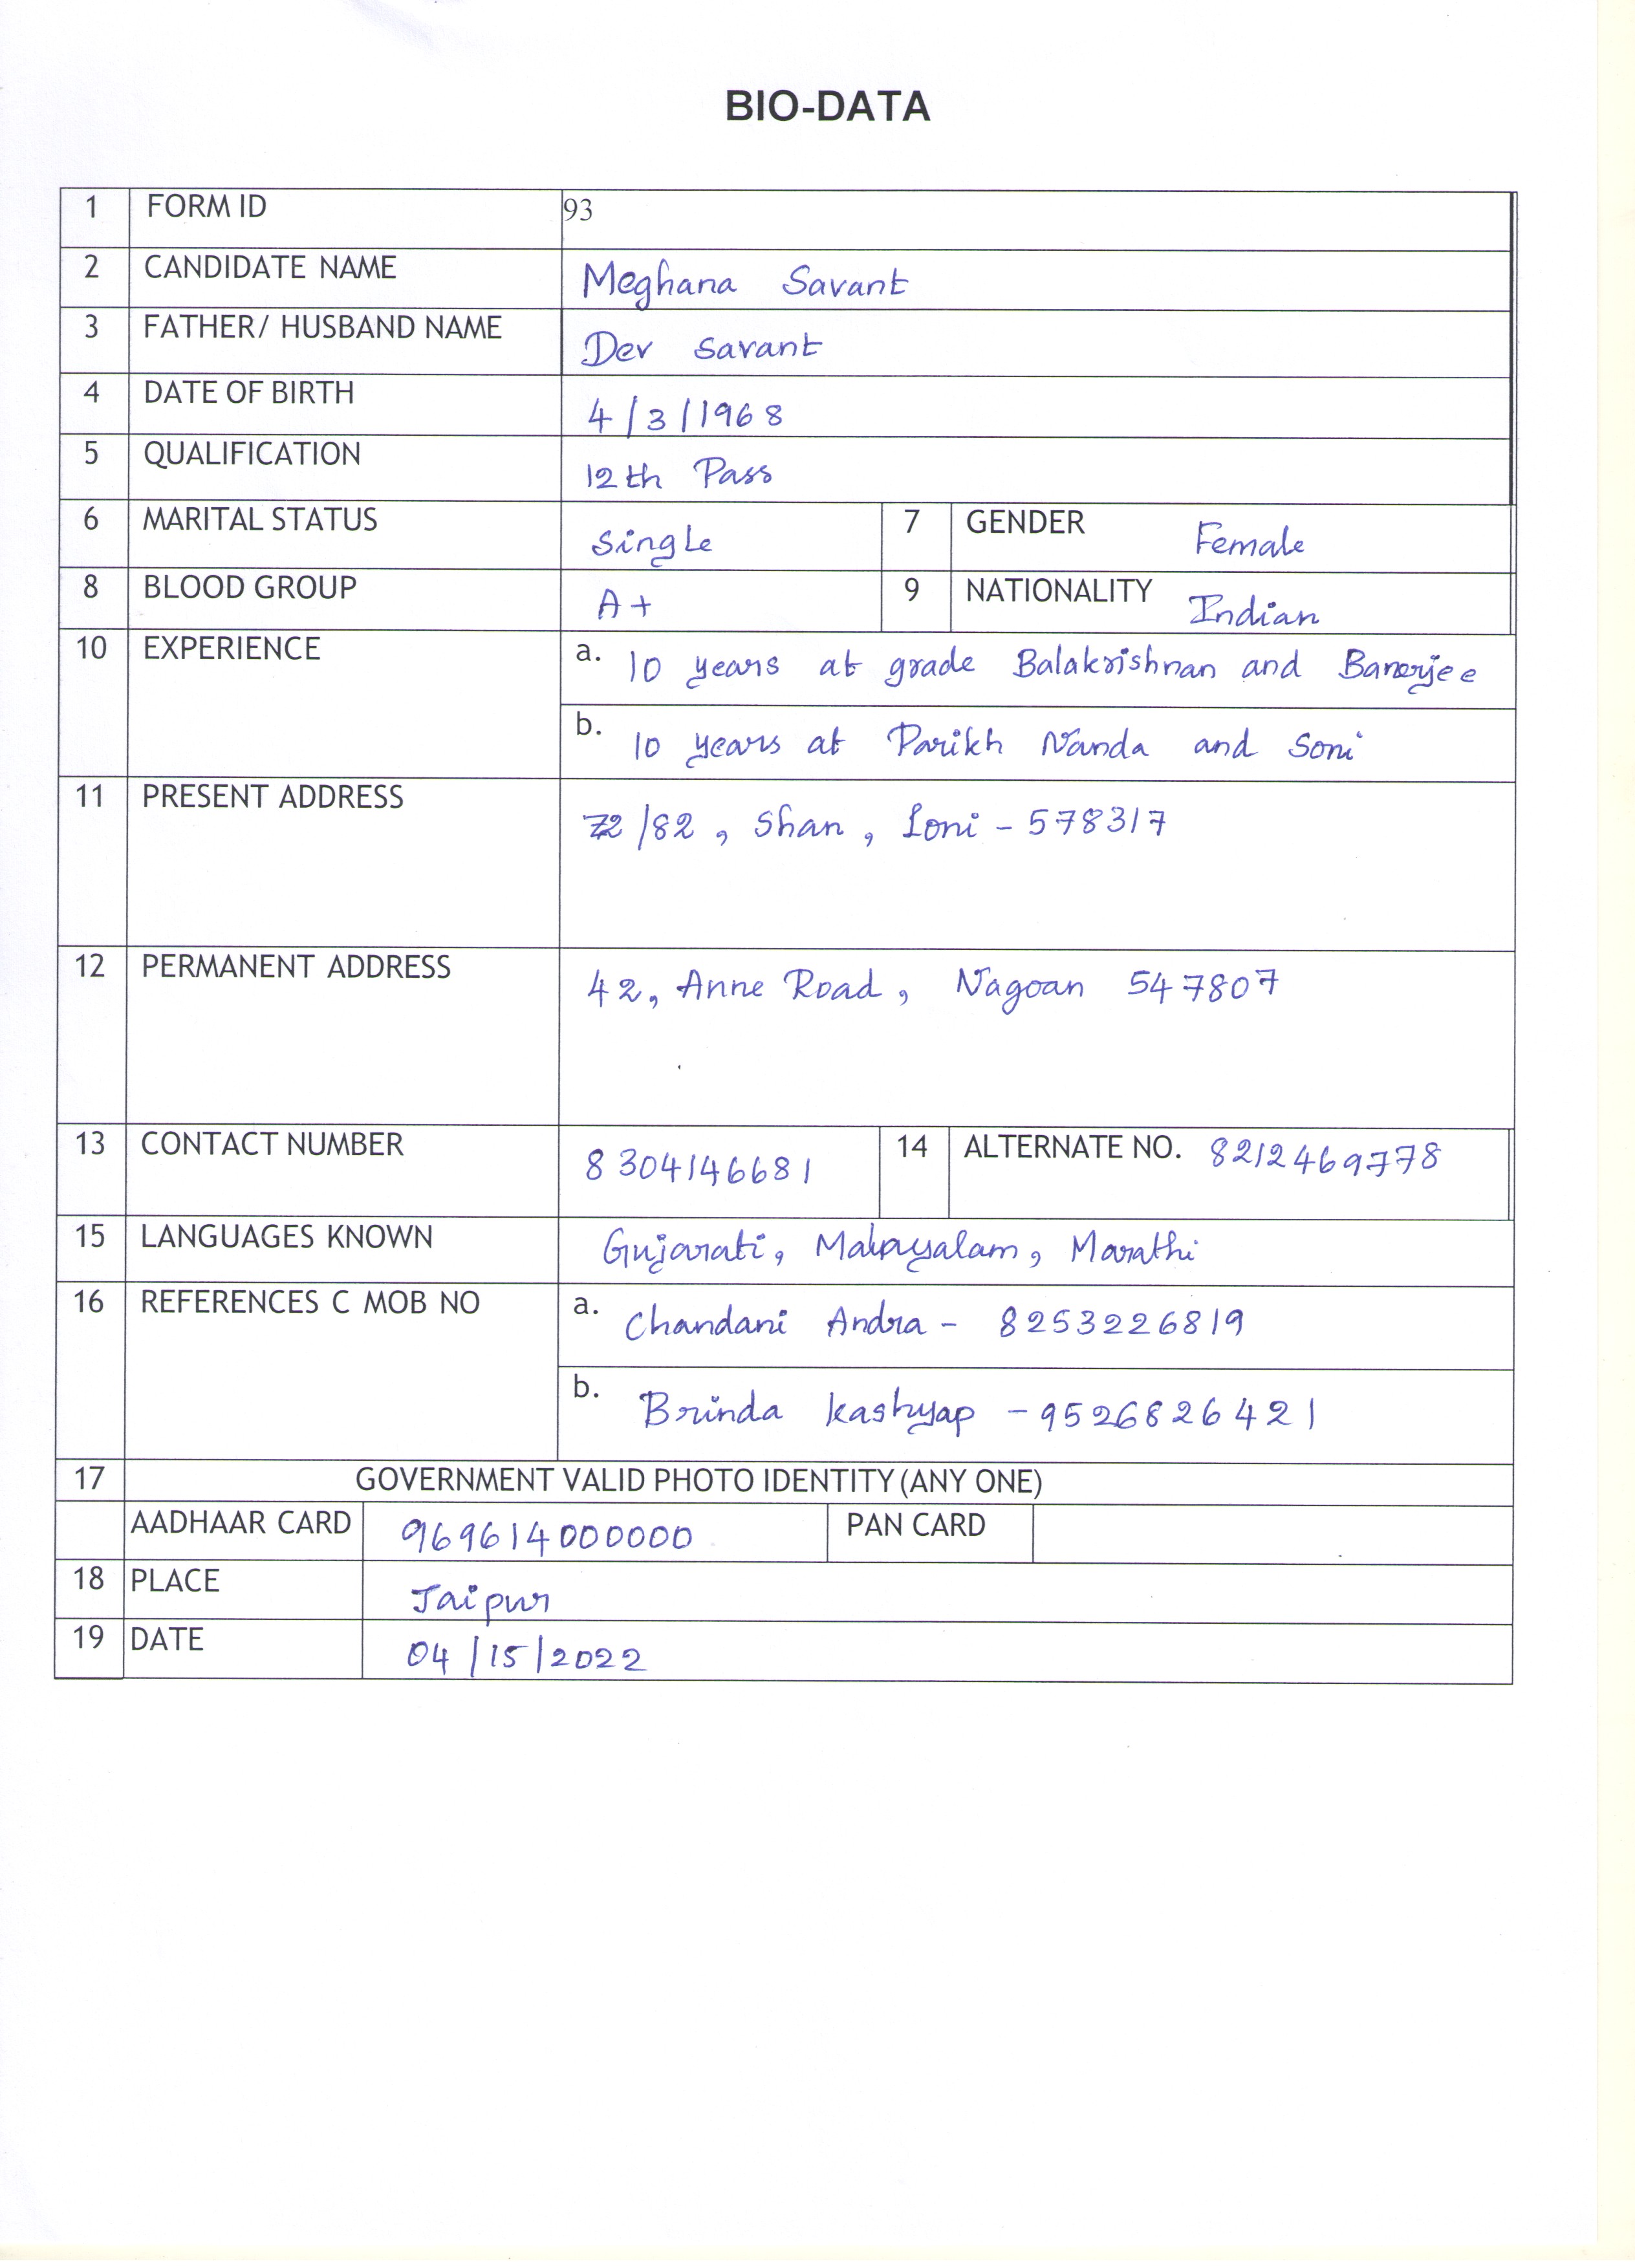 BIO-DATA
1 FORM ID 93
2 CANDIDATE NAME Meghana Savant
3 FATHER/ HUSBAND NAME Dev Savant
4 DATE OF BIRTH 4/3/1968
5 QUALIFICATION 12th Pass
6 MARITAL STATUS Single 7 GENDER Female
8 BLOOD GROUP A+ 9 NATIONALITY Indian
10 EXPERIENCE a. 10 years at grade Balakrishnan and Banerjee
b. 10 years at Parikh Nanda and Soni
11 PRESENT ADDRESS 72/82, Shan, Loni - 578317
12 PERMANENT ADDRESS 42, Anne Road, Nagoan 547807
13 CONTACT NUMBER 8304146681 14 ALTERNATE NO. 8212469778
15 LANGUAGES KNOWN Gujarati, Malayalam, Marathi
16 REFERENCES C MOB NO a. Chandani Andra - 8253226819
b. Brinda Kashyap - 9526826421
17 GOVERNMENT VALID PHOTO IDENTITY (ANY ONE)
AADHAAR CARD 969614000000 PAN CARD
18 PLACE Jaipur
19 DATE 04/15/2022